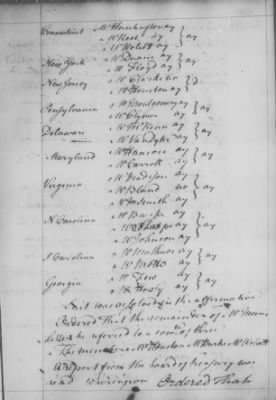 Connecticut Mr Huntington ay } ay
Mr Root ay
Mr Wolcott ay
New York Mr Duane ay } ay
Mr Floyd ay
New Jersey Mr Clark no
Mr Houston ay
Pensylvania Mr Montgomery ay } ay
Mr Clymer ay
Delaware Mr McKean ay } ay
Mr Vandyke ay
Maryland Mr Hanson ay } ay
Mr Carroll ay
Virginia Mr Madison ay } ay
Mr Bland no
Mr M Smith ay
N Carolina Mr Burke ay } ay
Mr Sharpe ay
Mr Johnson ay
S Carolina Mr Mathews ay } ay
Mr Motte ay
Georgia Mr Few ay } ay
Mr Howly ay
So it was resolved in the affirmative
Ordered that the remainder of Mr Morris
letter be referred to a comee of three
The members Mr Houston Mr Burke Mr Wolcott
A report from the board of treasury was
read whereupon Ordered That